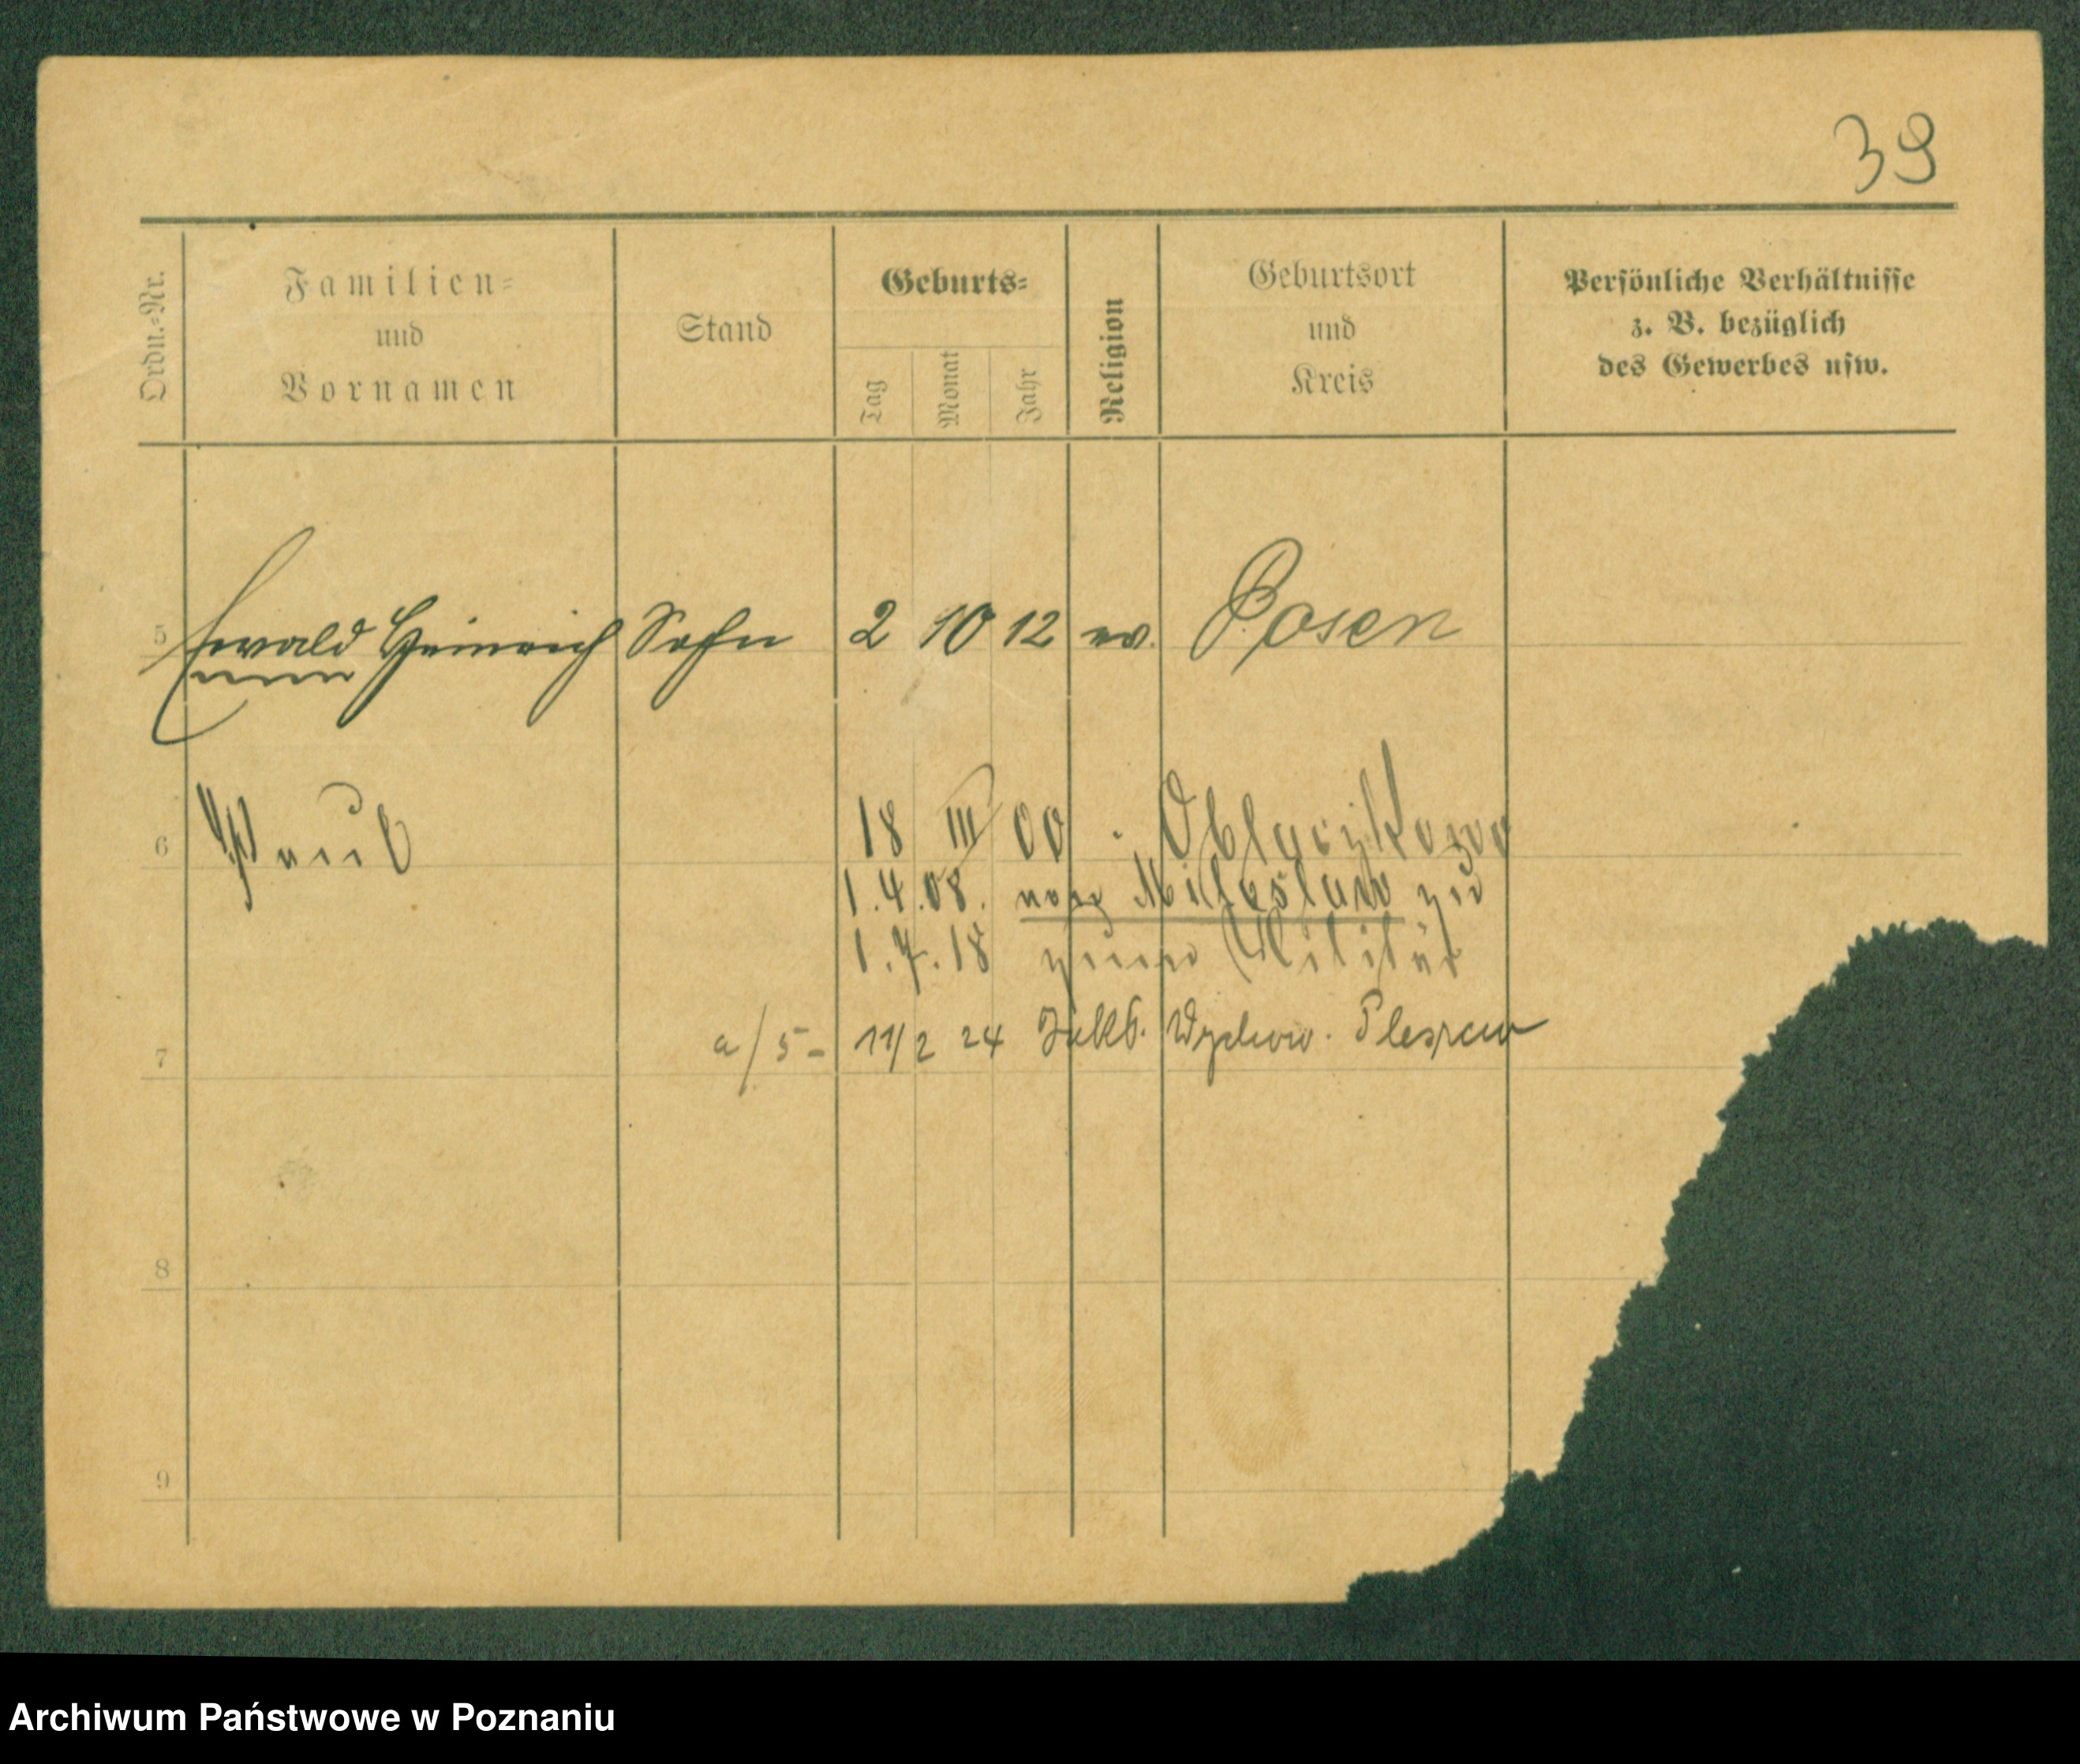 39
Ordn.-Nr.
Familien-
und
Vornamen
Stand
Geburts-
Tag
Monat
Jahr
Religion
Geburtsort
und
Kreis
Persönliche Verhältnisse
z. B. bezüglich
des Gewerbes usw.
5 Ewald Heinrich Sohn 2 10 12 ev. Posen
6 Paul 18 III 00
1.4.08. Miloslaw zu
1.7.18 zum Militär
7 a/5- 11/2 24 Wychow. Pleszew
8
9
Archiwum Państwowe w Poznaniu